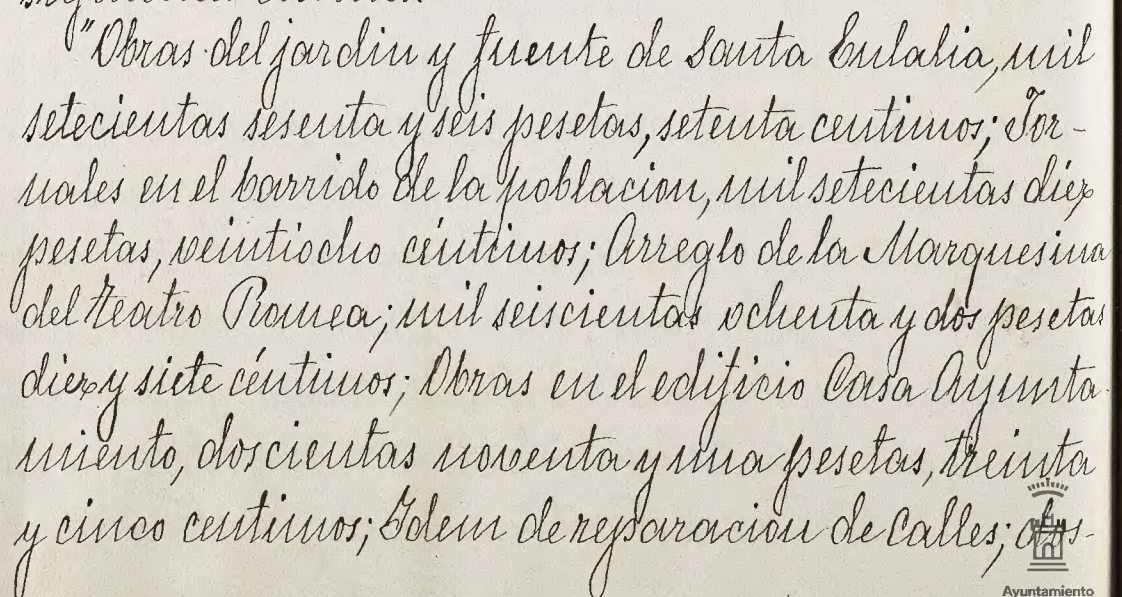 "Obras del jardin y fuente de Santa Eulalia, mil
setecientas sesenta y seis pesetas, setenta centimos; Jor-
nales en el barrido de la poblacion, mil setecientas diez
pesetas, veintiocho céntimos; Arreglo de la Marquesina
del teatro Romea; mil seiscientas ochenta y dos pesetas
diez y siete céntimos; Obras en el edificio Casa Ayunta-
miento, doscientas noventa y una pesetas, treinta
y cinco centimos; Idem de reparacion de Calles; dos-
Ayuntamiento